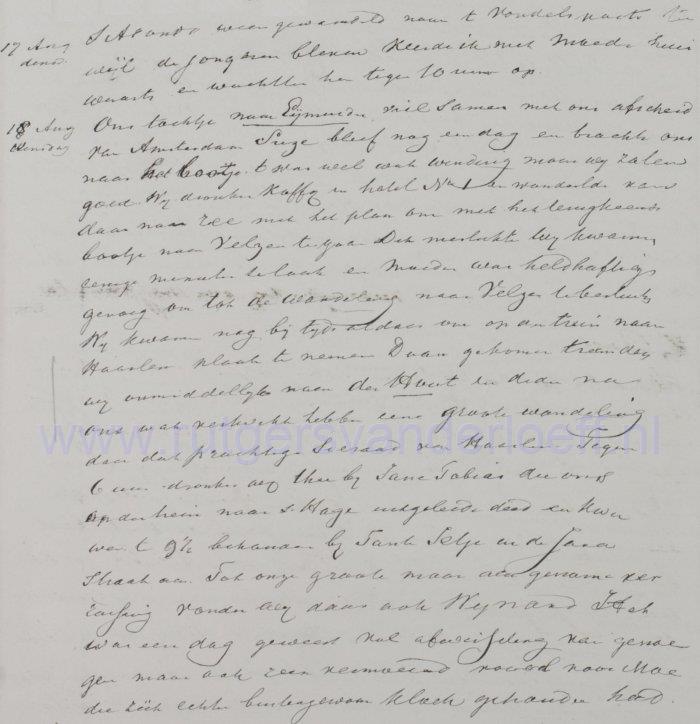 17 Aug S'Avonds weer gewandeld naar 't Vondelspark ter
wijl de jongeren bleven keerde ik met Moeder huis
waarts en wachtten hen tegen 10 uur op.
18 Aug Ons tochtje naar IJmuiden viel samen met ons afscheid
dinsdag van Amsterdam bleef nog een dag en brachte ons
naar het bootje. 't was wel wat winderig maar wy zaten
goed. Wy dronken Koffy in hotel No 1 en wandelde van
daar naar zee met het plan om met het terugkeerende
bootje naar Velzen te gaan Dit mislukte wy kwamen
eenige minuten te laat en Moeder was heldhaftig
genoeg om tot de wandeling naar Velzen te besluiten
Wy kwamen nog bij tyds aldaar om op den trein naar
Haarlem plaats te nemen Daar gekomen
wy onmiddellyk naar den Hout en deden na
ons wat verfrischt hebben eene groote wandeling
door dat prachtige Sieraad van Haarlem Tegen
6 uur dronken wy thee by Jane Tobias die ons
op den trein naar s Hage uitgeleide deed en
we 't 9½ behouden by Tante in de Java
Straat aan. Tot onze groote maar aangename ver
rassing vonden wy daar ook Wynand Het
was een dag geweest vol afwisseling van genoe
gen maar ook zeer vermoeiend vooral voor Moe
die zich echter buitengewoon kloek gehouden had.
www.rutgersvanderloeff.nl